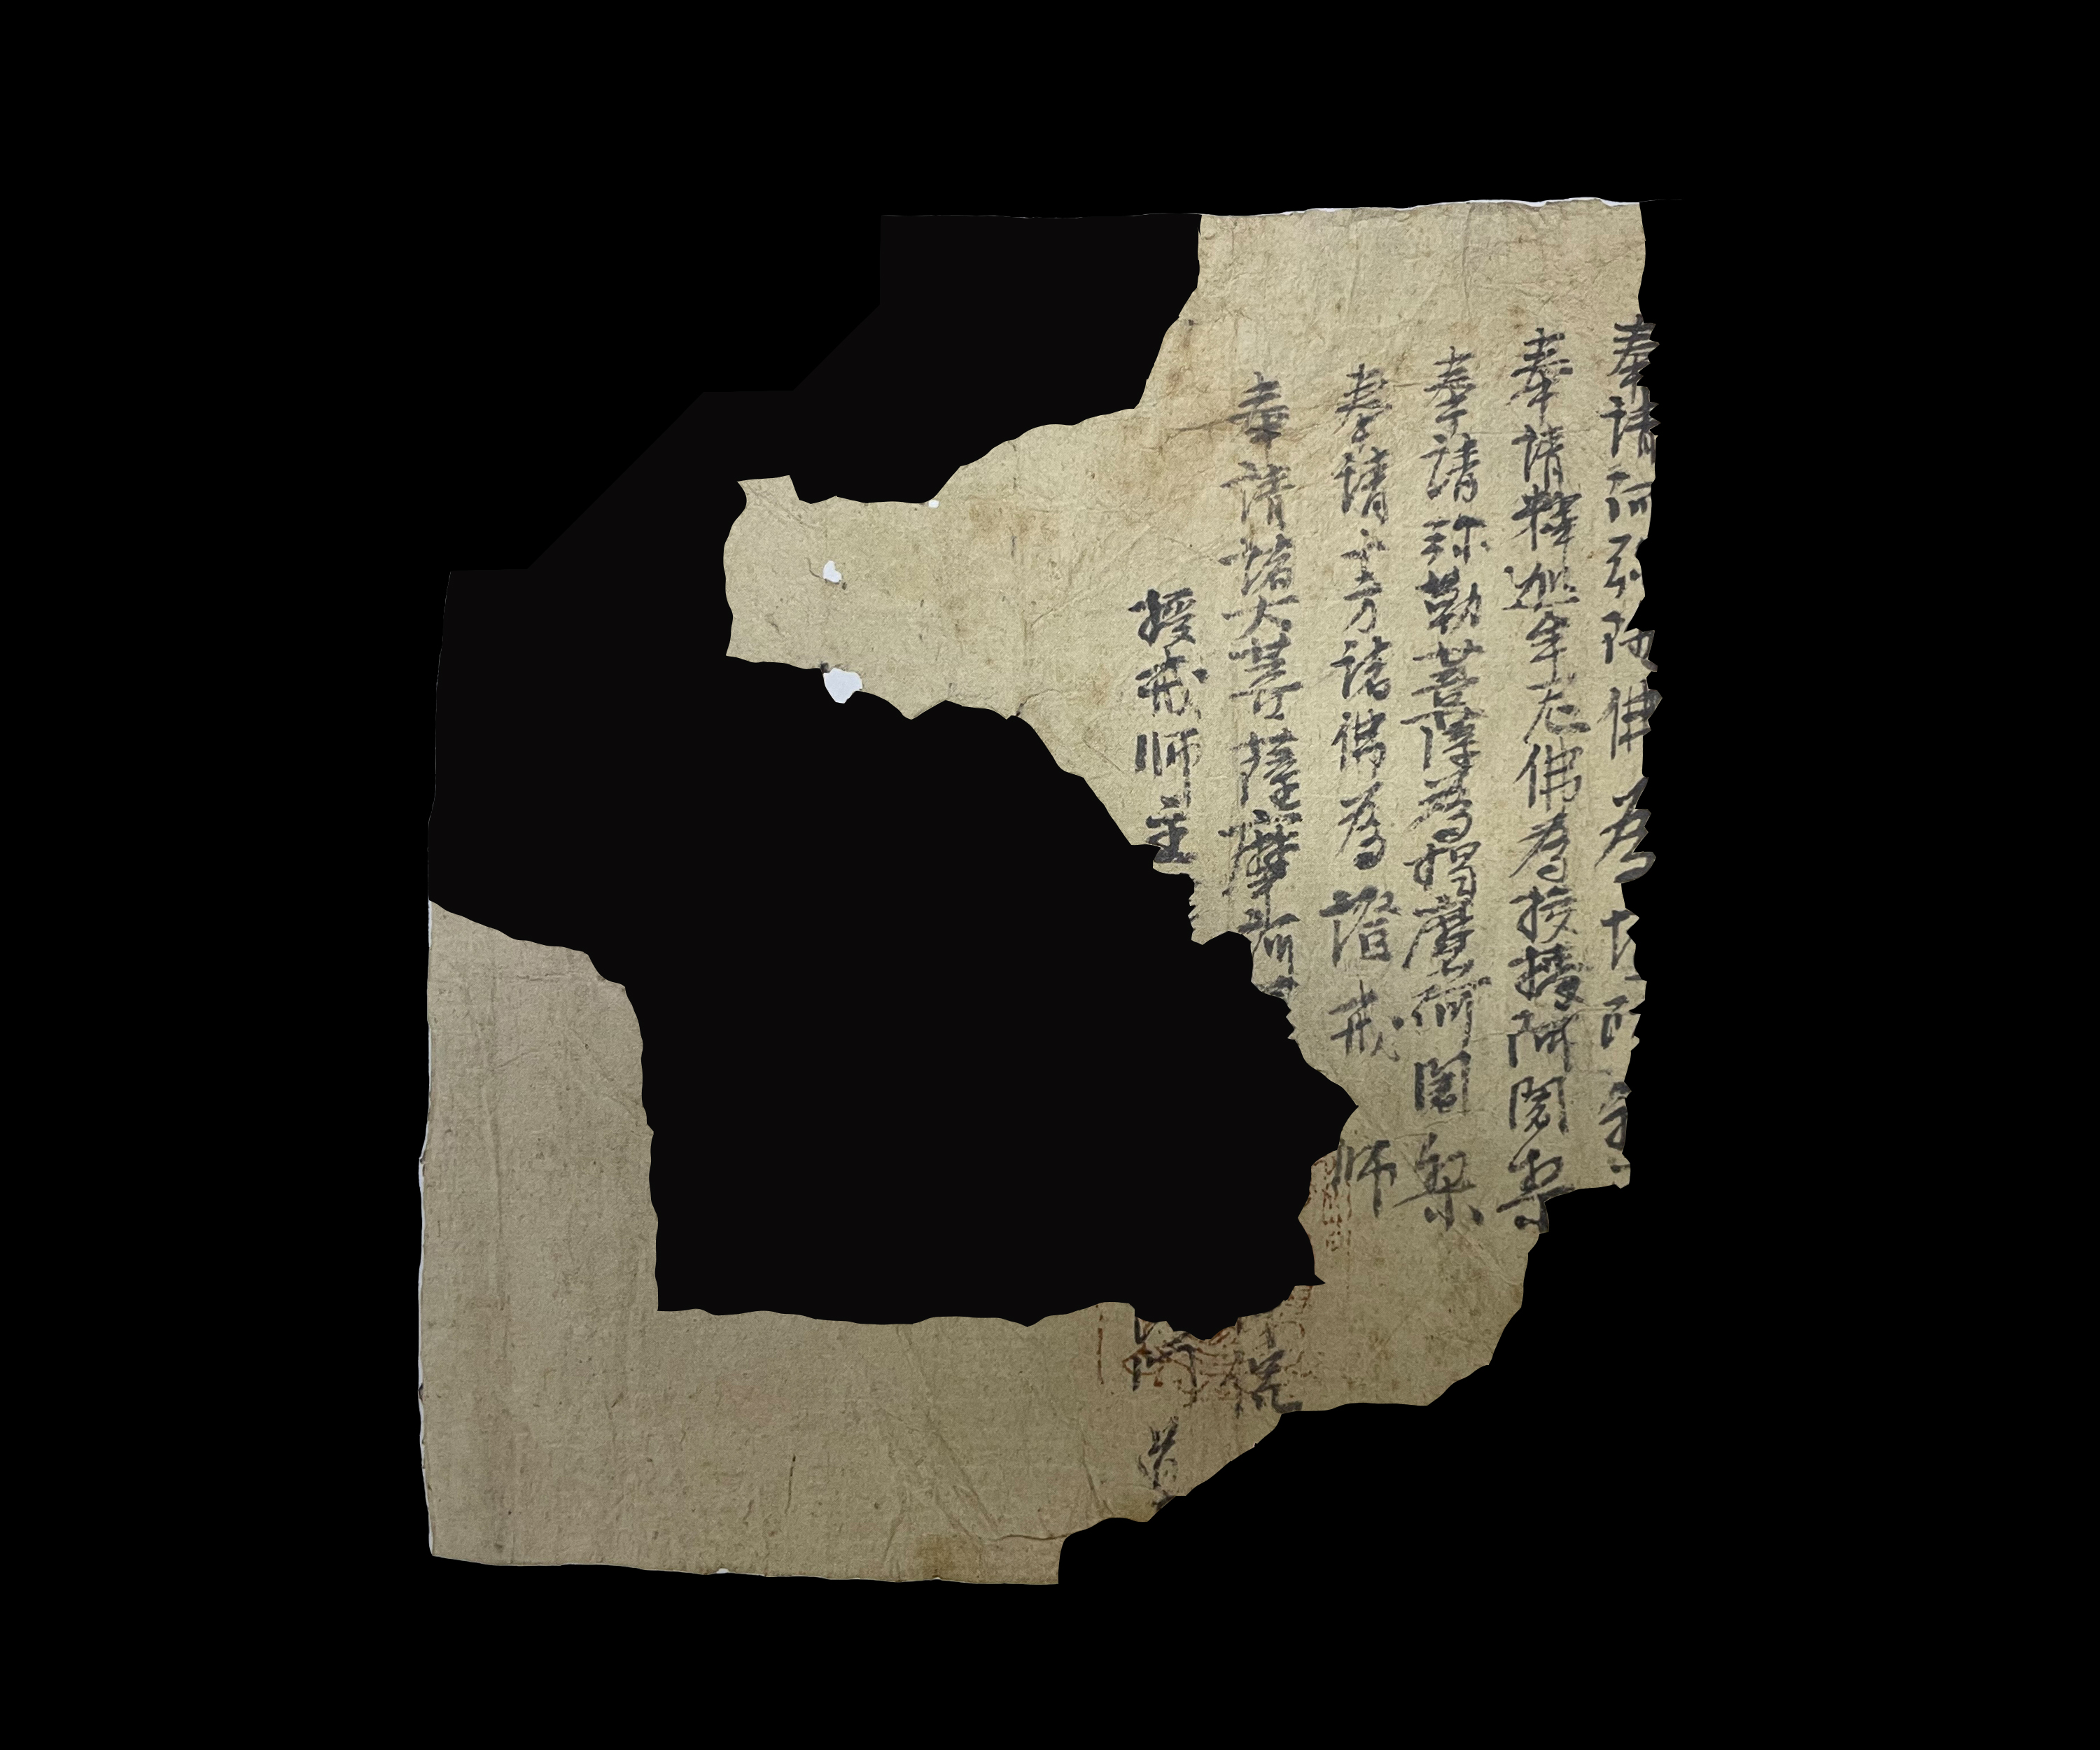 奉請阿弥陁佛為
奉請釋迦牟尼佛為授授阿闍梨
奉請弥勒菩薩為羯磨阿闍梨
奉請十方諸佛為證戒師
奉請諸大菩薩摩訶
授戒师主道